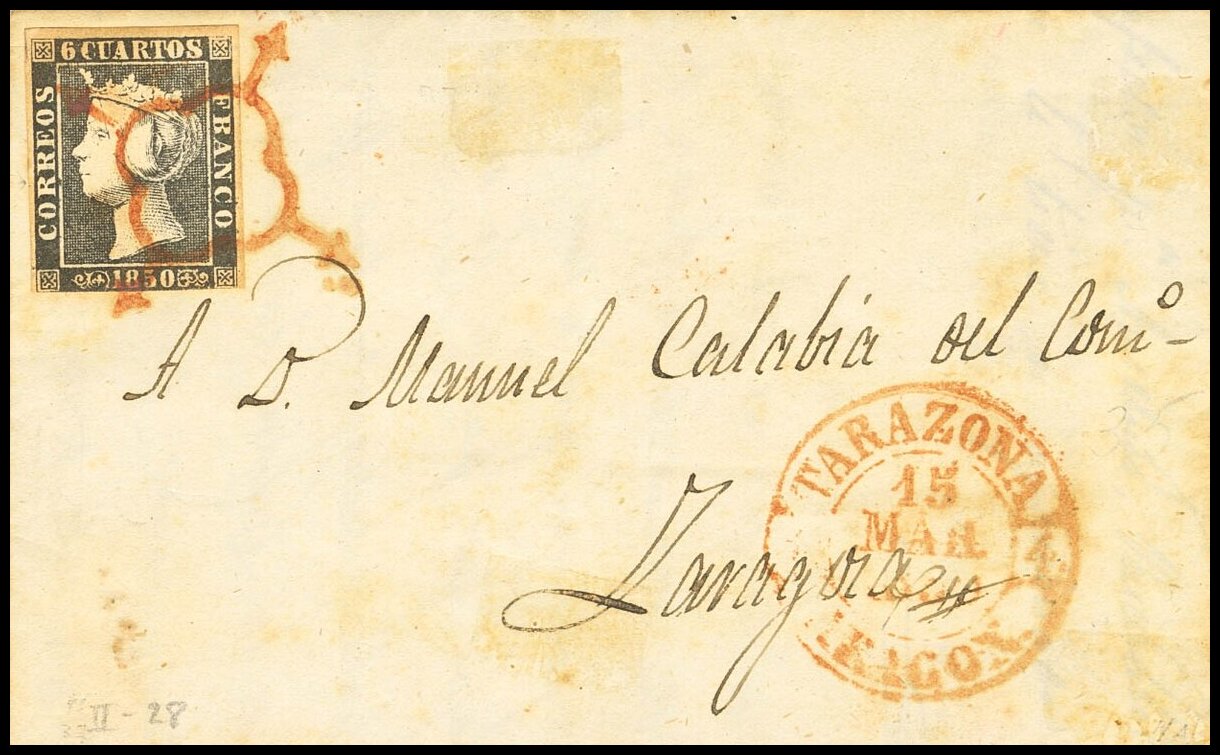 6 CUARTOS
CORREOS
FRANCO
1850
A D. Manuel Calabia del Comº
Zaragoza
TARAZONA
15
MAR
4
ARAGON.
II - 28